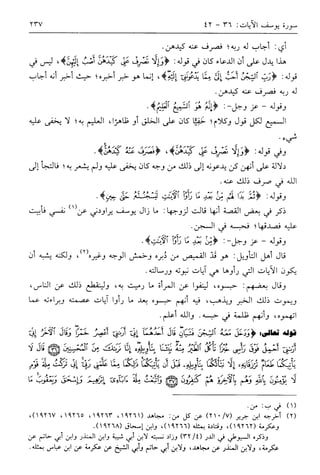 سورة يوسف الآيات: ٣٦ - ٤٢
٢٣٧
أي: أجاب له ربه؛ فصرف عنه كيدهن.
هذا يدل على أن الدعاء كان في قوله: ﴿وَإِلَّا تَصْرِفْ عَنِّي كَيْدَهُنَّ أَصْبُ إِلَيْهِنَّ﴾، ليس في
قوله: ﴿رَبِّ ٱلسِّجْنُ أَحَبُّ إِلَيَّ مِمَّا يَدْعُونَنِيٓ إِلَيْهِ﴾، إنما هو خبر أخبره؛ حيث أخبر أنه أجاب
له ربه فصرف عنه كيدهن.
وقوله - عز وجل-: ﴿إِنَّهُۥ هُوَ ٱلسَّمِيعُ ٱلْعَلِيمُ﴾.
السميع لكل قول وكلام؛ خفيًا كان على الخلق أو ظاهرًا، العليم به؛ لا يخفى عليه
شيء.
وفي قوله: ﴿وَإِلَّا تَصْرِفْ عَنِّي كَيْدَهُنَّ﴾، ﴿فَصَرَفَ عَنْهُ كَيْدَهُنَّ﴾.
دلالة على أنهن كن يدعونه إلى ذلك من وجه كان يخفى عليه ولم يشعر به؛ فالتجأ إلى
الله في صرف ذلك عنه.
وقوله: ﴿ثُمَّ بَدَا لَهُم مِّنۢ بَعْدِ مَا رَأَوُا۟ ٱلْـَٔايَـٰتِ لَيَسْجُنُنَّهُۥ حَتَّىٰ حِينٍ﴾.
ذكر في بعض القصة أنها قالت لزوجها: ما زال يوسف يراودني عن(١) نفسي فأبيت
عليه فصدقها؛ فحبسه في السجن.
وقوله - عز وجل-: ﴿مِّنۢ بَعْدِ مَا رَأَوُا۟ ٱلْـَٔايَـٰتِ﴾.
قال أهل التأويل: هو قدّ القميص من دُبره وخمش الوجه وغيره(٢)، ولكنه يشبه أن
يكون الآيات التي رأوها هي آيات نبوته ورسالته.
وقال بعضهم: حبسوه، لينفوا عن المرأة ما رميت به، ولينقطع ذلك عن الناس،
ويموت ذلك الخبر ويذهب، فيه أنهم حبسوه بعد ما رأوا آيات عصمته وبراءته عما
اتهموه، وأنهم ظلمة في حبسه. والله أعلم.
قوله تعالى: ﴿وَدَخَلَ مَعَهُ ٱلسِّجْنَ فَتَيَانِ قَالَ أَحَدُهُمَآ إِنِّيٓ أَرَىٰنِيٓ أَعْصِرُ خَمْرًا وَقَالَ ٱلْـَٔاخَرُ إِنِّيٓ
أَرَىٰنِيٓ أَحْمِلُ فَوْقَ رَأْسِي خُبْزًا تَأْكُلُ ٱلطَّيْرُ مِنْهُ نَبِّئْنَا بِتَأْوِيلِهِۦٓ إِنَّا نَرَىٰكَ مِنَ ٱلْمُحْسِنِينَ ٣٦ قَالَ لَا
يَأْتِيكُمَا طَعَامٌ تُرْزَقَانِهِۦٓ إِلَّا نَبَّأْتُكُمَا بِتَأْوِيلِهِۦ قَبْلَ أَن يَأْتِيَكُمَا ذَٰلِكُمَا مِمَّا عَلَّمَنِي رَبِّيٓ إِنِّي تَرَكْتُ مِلَّةَ قَوْمٍ
لَّا يُؤْمِنُونَ بِٱللَّهِ وَهُم بِٱلْـَٔاخِرَةِ هُمْ كَـٰفِرُونَ ٣٧ وَٱتَّبَعْتُ مِلَّةَ ءَابَآءِيٓ إِبْرَٰهِيمَ وَإِسْحَـٰقَ وَيَعْقُوبَ مَا
(١) في ب: من.
(٢) أخرجه ابن جرير (٢١٠/٧) عن كل من: مجاهد (١٩٢٦١، ١٩٢٦٣، ١٩٢٦٥، ١٩٢٦٧)،
وعكرمة (١٩٢٦٢)، وقتادة بمثله (١٩٢٦٦)، وابن إسحاق (١٩٢٦٨).
وذكره السيوطي في الدر (٣٢/٤) وزاد نسبته لابن أبي شيبة وابن المنذر وابن أبي حاتم عن
عكرمة، ولابن المنذر عن مجاهد، ولابن أبي حاتم وأبي الشيخ عن عكرمة عن ابن عباس بمثله.